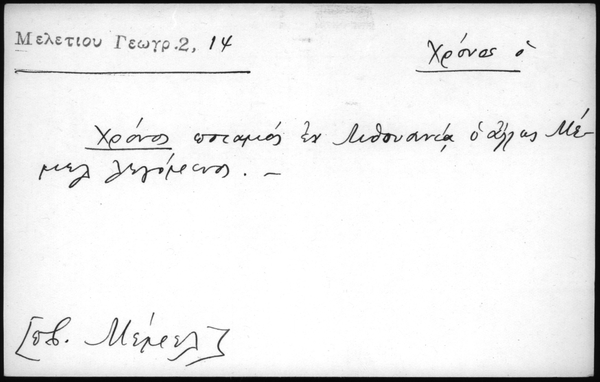 Μελετίου Γεωγρ.2, 14
Χρόνος ὁ
Χρόνος ποταμός ἐν Λιθουανίᾳ ὁ ἄλλως Μέ-
μελ λεγόμενος. —
[πβ. Μέμελ]